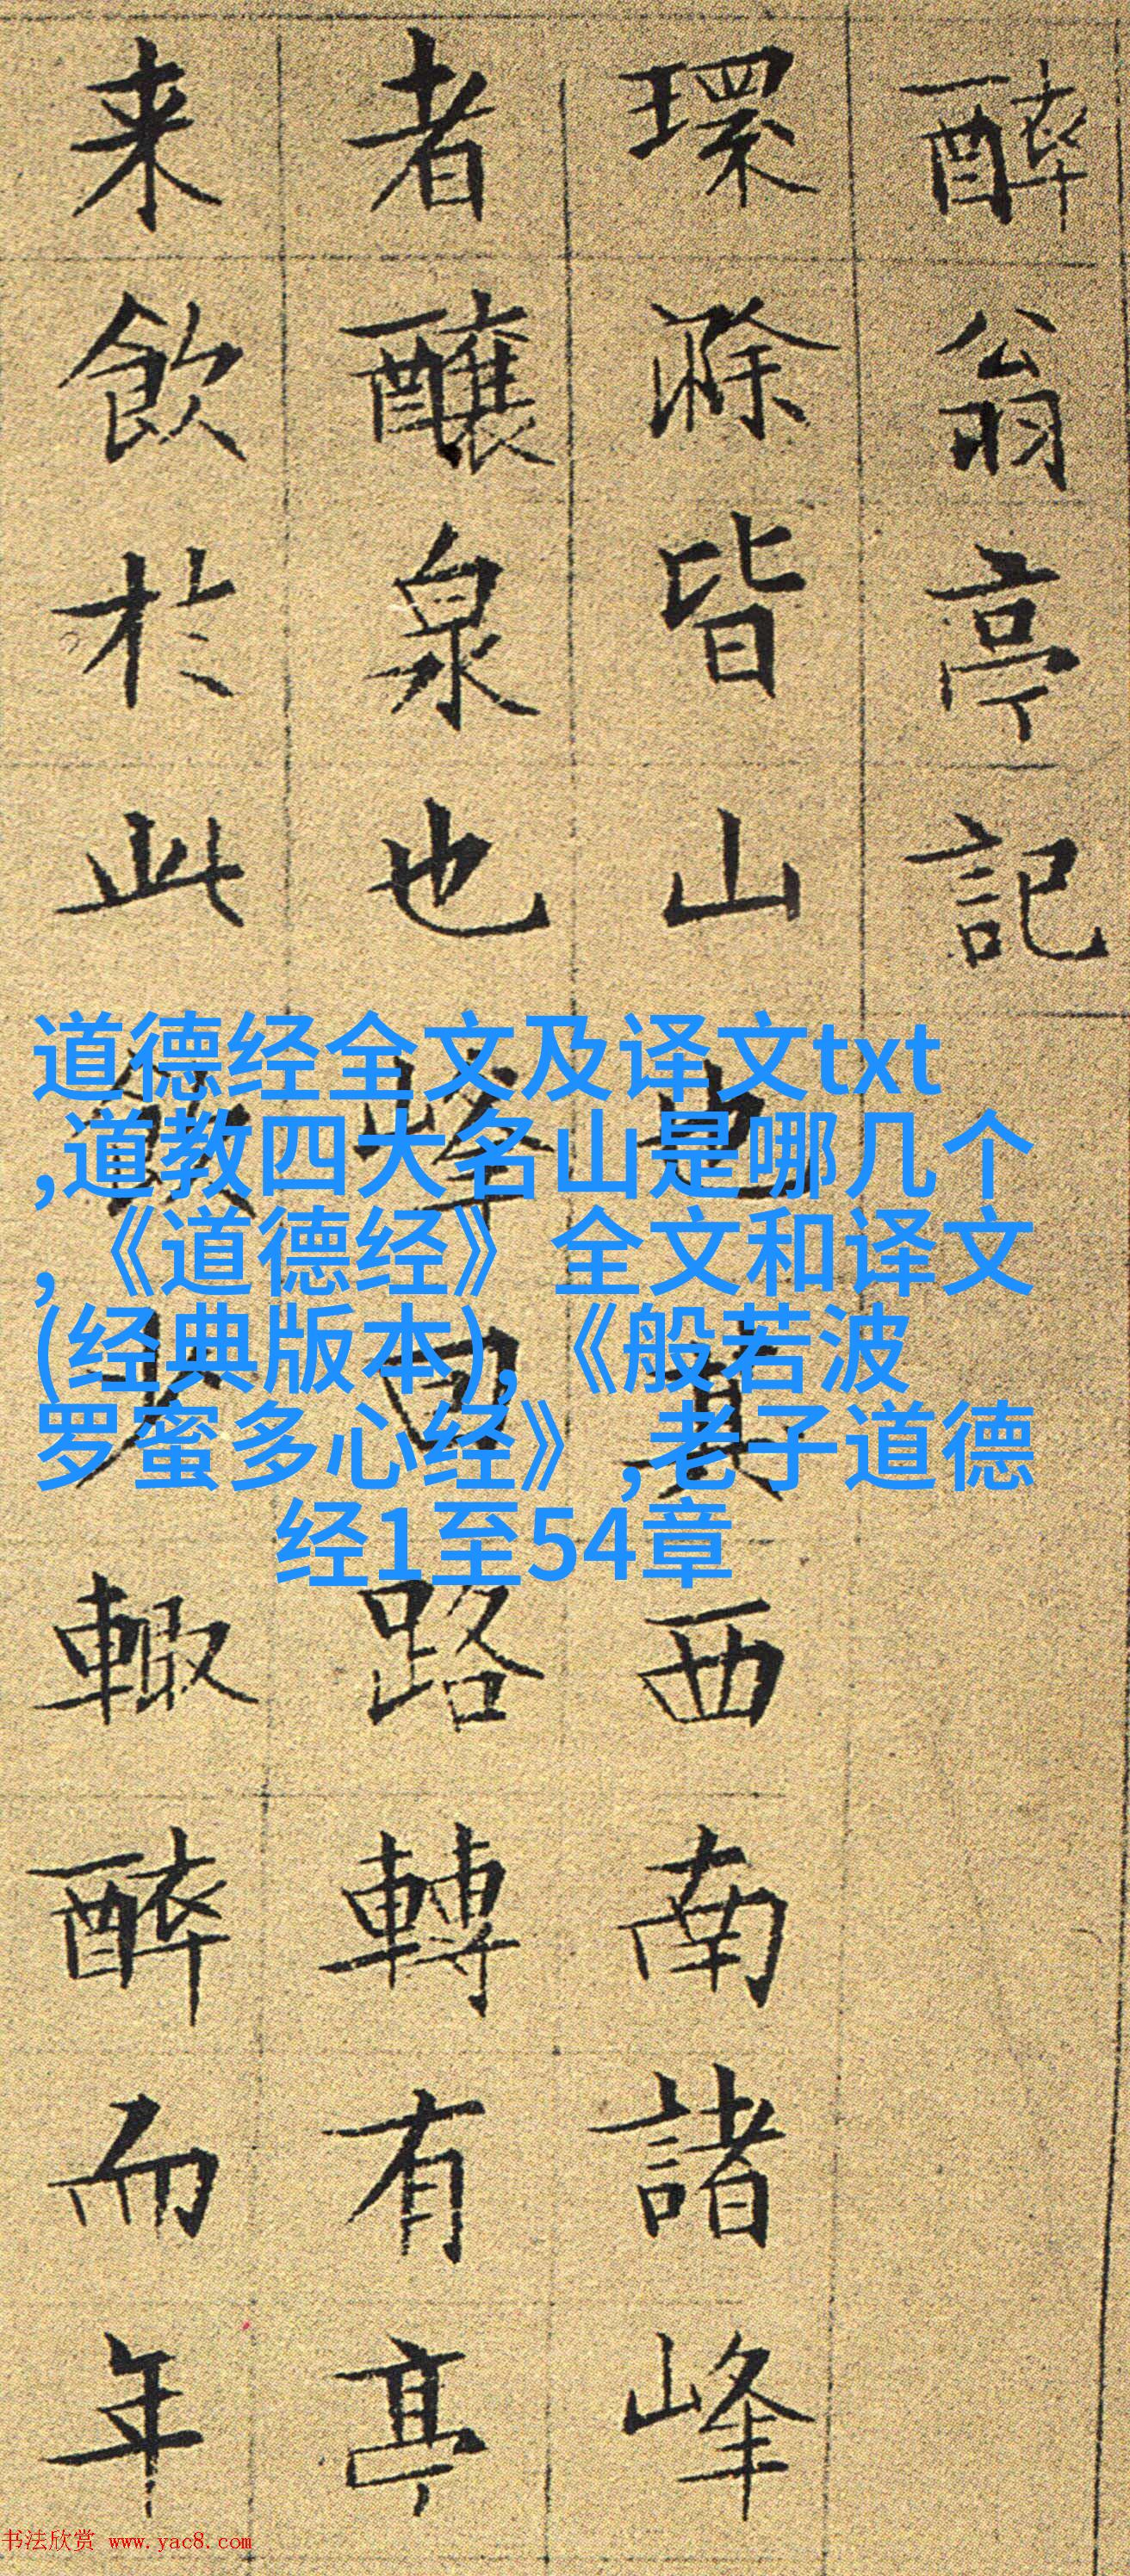 醉翁亭記
環滁皆山也其西南諸峰
者釀泉也峰回路轉有亭
来飲於此飲少輒醉而年
道德经全文及译文txt
,道教四大名山是哪几个
,《道德经》全文和译文
(经典版本),《般若波
罗蜜多心经》,老子道德
经1至54章
书法欣赏 www.yac8.com